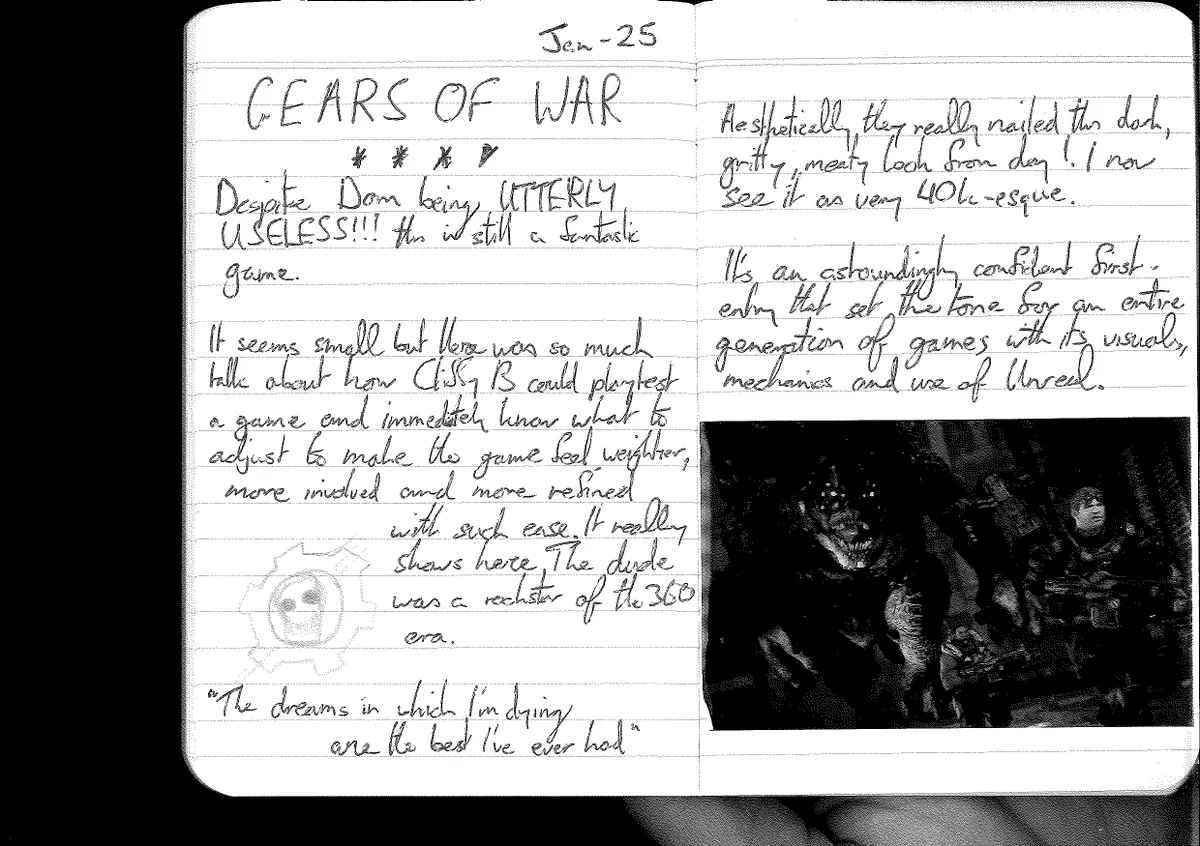 Jan-25
GEARS OF WAR
* * *
Despite Dom being UTTERLY
USELESS!!! this is still a fantastic
game.
It seems small but there was so much
talk about how Cliffy B could playtest
a game and immediately know what to
adjust to make the game feel weightier,
more involved and more refined
with such ease. It really
shows here. The dude
was a rockstar of the 360
era.
"The dreams in which I'm dying
are the best I've ever had"
Aesthetically, they really nailed this dark,
gritty, meaty look from day 1. I now
see it as very 40k-esque.
It's an astoundingly confident first-
entry that set the tone for an entire
generation of games with its visuals,
mechanics and use of Unreal.